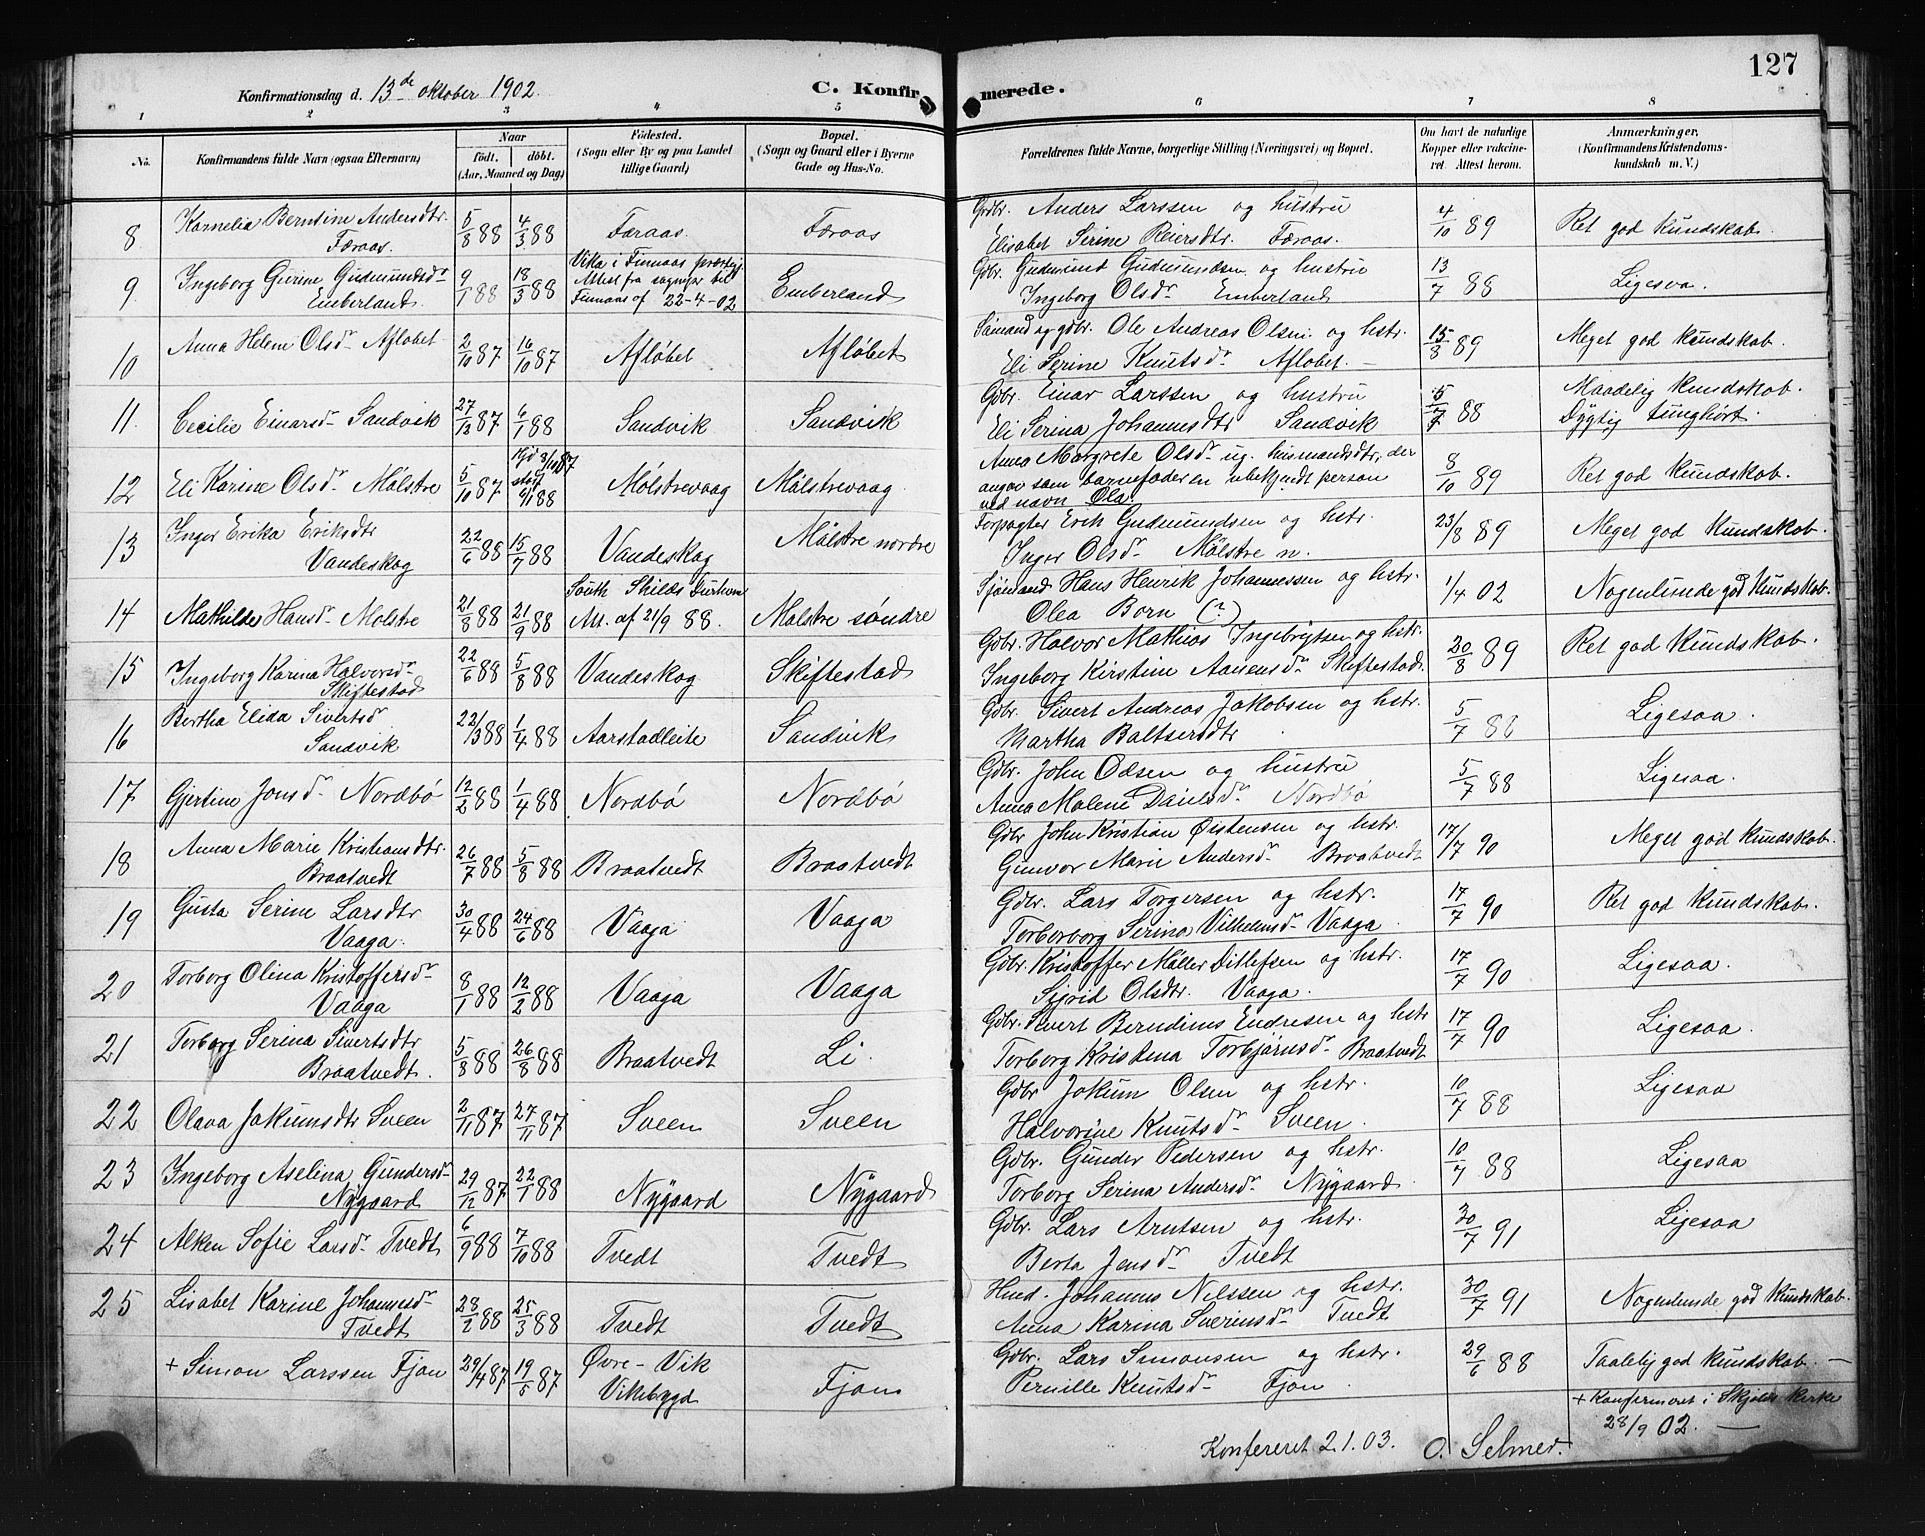 127
Konfirmationsdag d. 13de oktober 1902.
C. Konfirmerede.
1 2 3 4 5 6 7 8
No.
Konfirmandens fulde Navn (ogsaa Efternavn)
Naar
født. døbt.
(Aar, Maaned og Dag)
Fødested.
(Sogn eller By og paa Landet
tillige Gaard)
Bopæl.
(Sogn og Gaard eller i Byerne
Gade og Hus-No.
Forældrenes fulde Navne, borgerlige Stilling (Næringsvei) og Bopæl.
Om havt de naturlige
Kopper eller vakcine-
ret Attest herom.
Anmærkninger,
(Konfirmandens Kristendoms-
kundskab m. V.)
8 Kornelia Berntine Andersdtr. Færaas. 5/8 88 4/3 88 Færaas. Færaas
Grdbr. Anders Larssen og hustru
Elisabet Serine Reiersdtr. Færaas. 4/10 89 Ret god kundskab.
9 Ingeborg Gurine Gudmundsdr Emberland. 9/1 88 18/3 88 Vika i Finnaas præstegj.
Attest fra sognepr. til
Finnaas af 22-4-02 Emberland
Gdbr. Gudmund Gudmundsen og hustru
Ingeborg Olsdr Emberland 13/7 88 Ligesaa.
10 Anna Helene Olsdr Afløbet 2/10 87 16/10 87 Afløbet Afløbet
Sømand og gdbr. Ole Andreas Olsen og hstr.
Eli Serine Knutsdr Afløbet. 15/8 89 Meget god kundskab.
11 Cecilie Einarsdr Sandvik 27/12 87 6/1 88 Sandvik Sandvik
Gdbr. Einar Larssen og hustru
Eli Serina Johannesdtr Sandvik 5/7 88 Maadelig kundskab.
Dygtig tunghørt.
12 Eli Karine Olsdr Mølstre 5/10 87 Hjd 3/11 87
stdf 6/1 88 Mølstrevaag Mølstrevaag
Anna Margrete Olsdr ug. husmandsdtr, der
angav som barnefader en ubekjendt person
ved navn Ola. 8/10 89 Ret god kundskab.
13 Inger Erika Eriksdtr Vandeskog 22/6 88 15/7 88 Vandeskog Mølstre nordre
Forpagter Erik Gudmundsen og hstr.
Inger Olsdr Mølstre n. 23/8 89 Meget god kundskab.
14 Mathilde Hansdr Mølstre 21/8 88 21/9 88 South Shilds Durham
Att. af 21/9 88. Mølstre søndre
Sjømand Hans Henrik Johannessen og hstr.
Olea Born (?) 1/4 02 Nogenlunde god kundskab.
15 Ingeborg Karina Halvorsdr Skiftestad 22/6 88 5/8 88 Vandeskog Skiftestad
Gdbr. Halvor Mathias Ingebrigtsen og hstr.
Ingeborg Kirstine Aanensdr Skiftestad. 20/8 89 Ret god kundskab.
16 Bertha Elida Sivertsdr Sandvik 22/3 88 1/4 88 Aarstadleite Sandvik
Gdbr. Sivert Andreas Jakobsen og hstr.
Martha Baltsersdtr 5/7 88 Ligesaa.
17 Gjertine Jonsdr Nordbø 12/2 88 1/4 88 Nordbø Nordbø
Gdbr. John Odsen og hustru
Anna Malene Danielsdr. Nordbø 5/7 88 Ligesaa.
18 Anna Marie Kristiansdtr. Braatvedt 26/7 88 5/8 88 Braatvedt Braatvedt
Gdbr John Kristian Østensen og hstr.
Gunvor Marie Andersdr Braatvedt 17/7 90 Meget god kundskab.
19 Gusta Serine Larsdtr Vaaga. 30/4 88 24/6 88 Vaaga Vaaga
Gdbr. Lars Torgersen og hstr.
Torborborg Serina Vilhelmsdr Vaaga 17/7 90 Ret god kundskab.
20 Torborg Olina Kristoffersdr Vaaga 8/1 88 12/2 88 Vaaga Vaaga
Gdbr. Kristoffer Møller Ditlefsen og hstr.
Sigrid Olsdtr. Vaaga. 17/7 90 Ligesaa.
21 Torborg Serina Sivertsdtr Braatvedt. 5/8 88 26/8 88 Braatvedt Li.
Gdbr. Sivert Berndinus Endresen og hstr
Torborg Kristina Torbjørnsdr Braatvedt 17/7 90 Ligesaa.
22 Olava Jakumsdtr Sveen 2/11 87 27/11 87 Sveen Sveen
Gdbr Jokum Olsen og hstr.
Halvorine Knutsdr Sveen. 10/7 88 Ligesaa
23 Ingeborg Aselina Gundersdr Nygaard 29/12 87 22/1 88 Nygaard Nygaard
Gdbr. Gunder Pedersen og hstr.
Torborg Serina Andersdr Nygaard. 10/7 88 Ligesaa
24 Alken Sofie Larsdr Tvedt 6/9 88 7/10 88 Tvedt Tvedt
Gdbr. Lars Arntsen og hstr.
Berta Jensdr Tvedt 30/7 91 Ligesaa
25 Lisabet Karine Johannesdr Tvedt 28/2 88 25/3 88 Tvedt Tvedt
Hmd. Johannes Nilssen og hstr.
Anna Karina Sverinsdr Tvedt 30/7 91 Nogenlunde god kundskab.
+ Simon Larssen Fjon 29/4 87 19/5 87 Øvre-Vik
Vikebygd Fjon
Gdbr. Lars Simonsen og hstr.
Pernille Knutsdr Fjon. 29/6 88 Taalelig god kundskab.
+ Konfirmeret i Skjolds kirke
28/9 02.
Konfereret 2.1.03. O. Selmer.